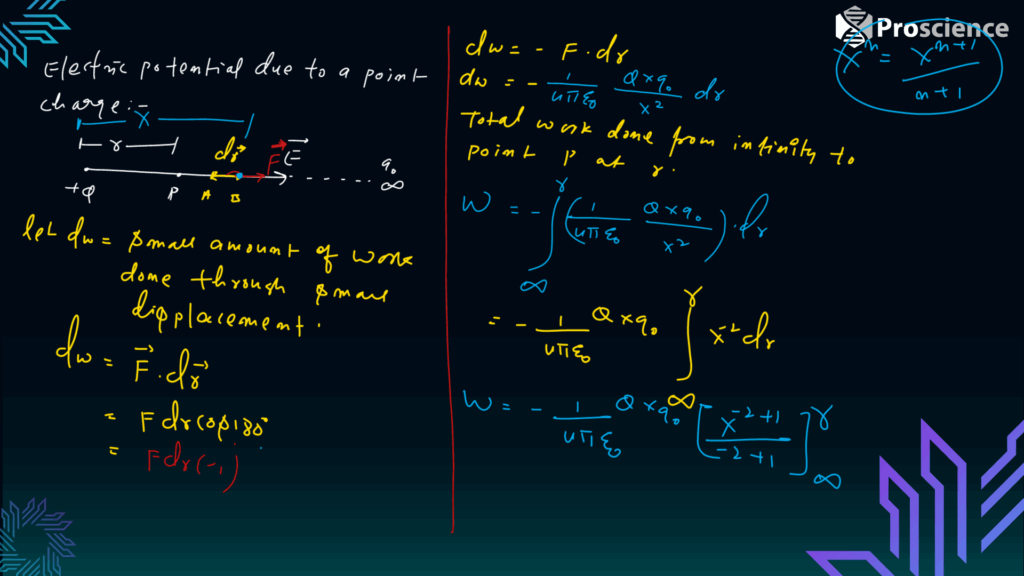 Proscience
Electric potential due to a point
charge:-
x
r
dr⃗
F⃗ E⃗
q₀
+Q P A B ∞
let dw = small amount of work
done through small
displacement.
dw = F⃗ . dr⃗
= F dr cos180°
= Fdr(-1)
dw = - F . dr
dw = - 1/4πε₀ Q×q₀/x² dr
Total work done from infinity to
point P at r.
W = - ∫_∞^r (1/4πε₀ Q×q₀/x²) . dr
= - 1/4πε₀ Q×q₀ ∫_∞^r x⁻² dr
W = - 1/4πε₀ Q×q₀ [x⁻²⁺¹/-2+1]_∞^r
xⁿ = xⁿ⁺¹/n+1